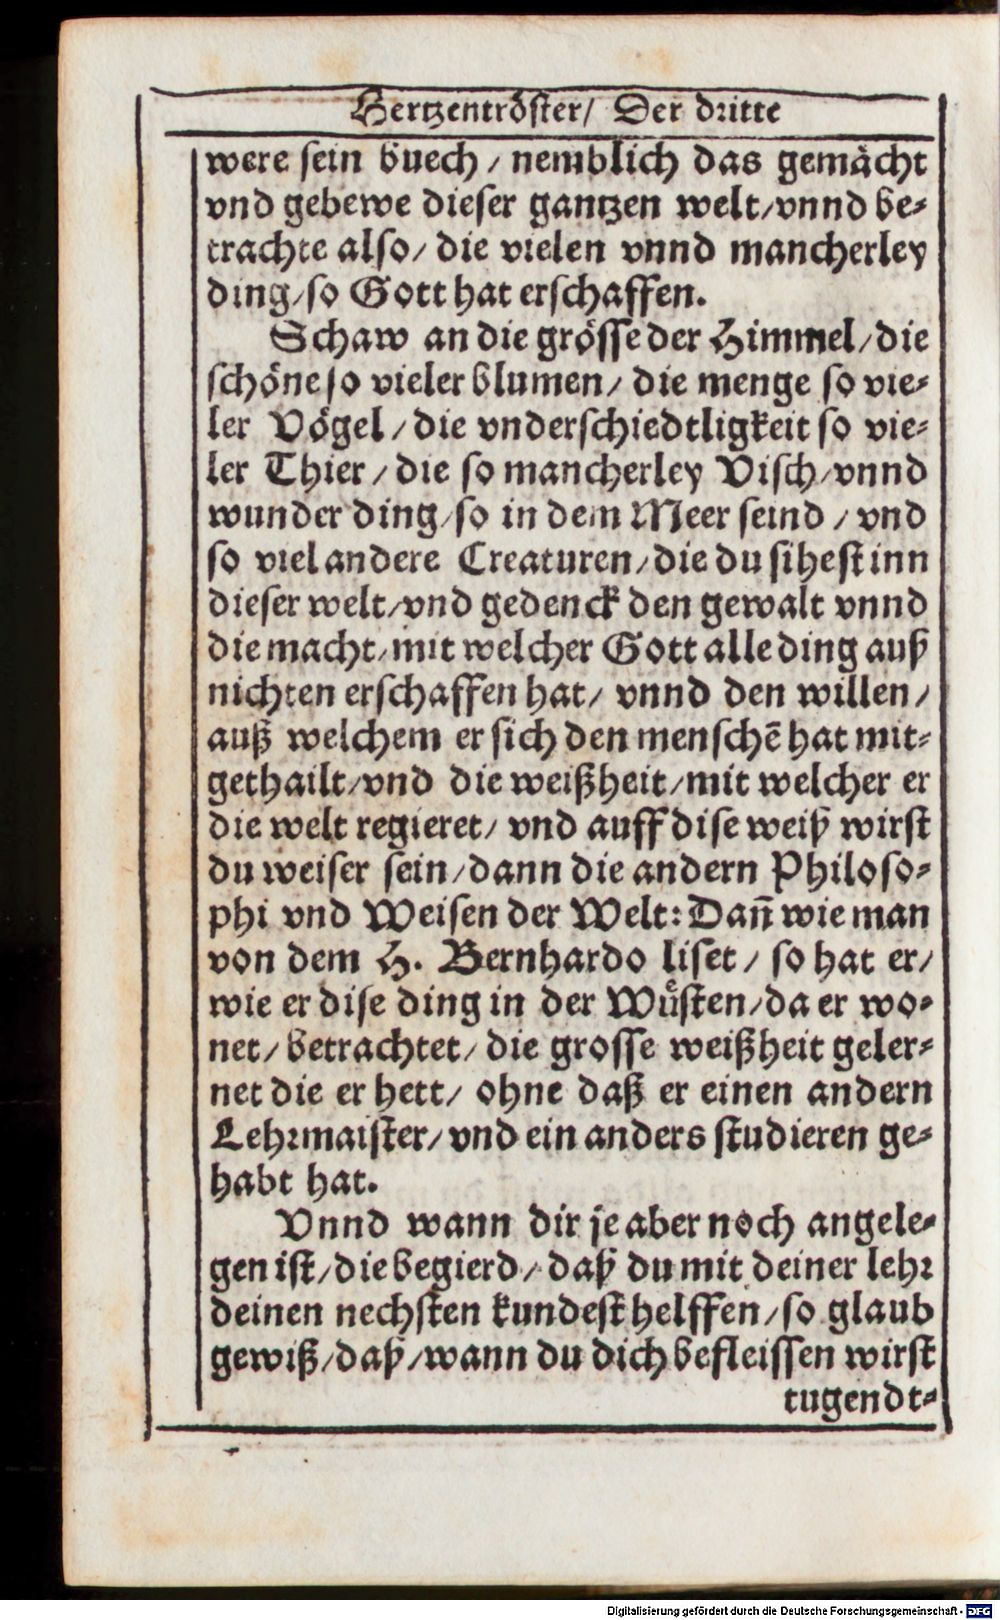 Hertzentröster/ Der dritte
were sein buech / nemblich das gemächt
vnd gebewe dieser gantzen welt/vnnd be-
trachte also/ die vielen vnnd mancherley
ding/so Gott hat erschaffen.
Schaw an die grösse der Himmel/die
schöne so vieler blumen/ die menge so vie-
ler Vögel/die vnderschiedtligkeit so vie-
ler Thier/die so mancherley Visch/vnnd
wunder ding/so in dem Meer seind / vnd
so viel andere Creaturen/die du sihest inn
dieser welt/vnd gedenck den gewalt vnnd
die macht/mit welcher Gott alle ding auß
nichten erschaffen hat/ vnnd den willen/
auß welchem er sich den menschē hat mit-
gethailt/vnd die weißheit/mit welcher er
die welt regieret/ vnd auff dise weiß wirst
du weiser sein/dann die andern Philoso-
phi vnd Weisen der Welt: Dañ wie man
von dem H. Bernhardo liset / so hat er/
wie er dise ding in der Wüsten/da er wo-
net/ betrachtet/die grosse weißheit geler-
net die er hett/ ohne daß er einen andern
Lehrmaister/vnd ein anders studieren ge-
habt hat.
Vnnd wann dir je aber noch angele-
gen ist/die begierd/ daß du mit deiner lehr
deinen nechsten kundest helffen/so glaub
gewiß/daß/wann du dich befleissen wirst
tugendt-
Digitalisierung gefördert durch die Deutsche Forschungsgemeinschaft - DFG